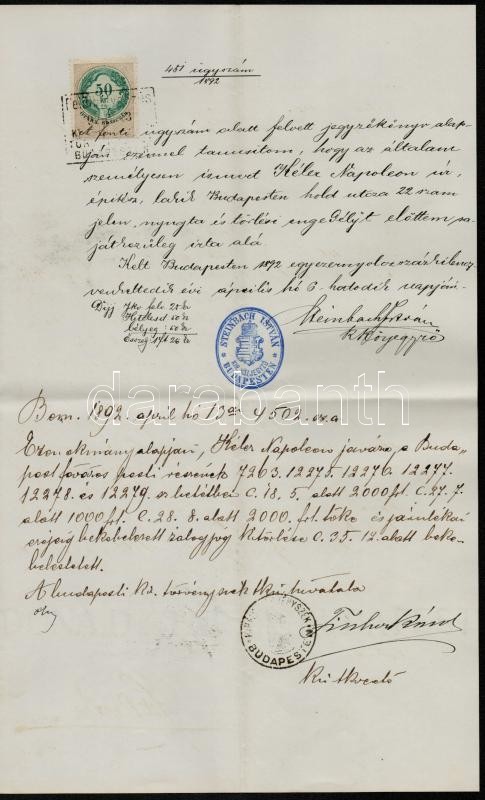 481 ügyszám
1892
50
Két fonti ügyszám alatt felvett jegyzőkönyv alap-
ján ezennel tanusitom, hogy az általam
személyesen ismert Kéler Napoleon úr,
épitész, lakik Budapesten hold utcza 22 szám
jelen nyugta és törlési engedélyt előttem sa-
játkezüleg irta alá.
Kelt Budapesten 1892 egyezernyolczszázkilencz
venkettedik évi április hó 6. hatodik napján.
Dijj
Hiteles d 50 kr
bélyeg 50 kr
Steinbach István
kir. közjegyző
STEINBACH ISTVÁN
KIR. KÖZJEGYZŐ
BUDAPESTEN
darabanth
Bezn. 1892. april hó 13án 9502. sz. a.
Ezen okmány alapján, Kéler Napoleon javára, a Buda-
pest főváros pesti részének 7263. 12275. 12276. 12277.
12278. és 12279. sz. betétben C. 18. 5. alatt 2000 ft. C. 27. 7.
alatt 1000 ft. C. 28. 8. alatt 2000. frt. tőke és járulékai
erejéig bekebelezett zálogjog kitörlése C. 35. 12. alatt beke-
beleztetett.
A budapesti kir. törvényszék tlkvi hivatala
BUDAPESTEN